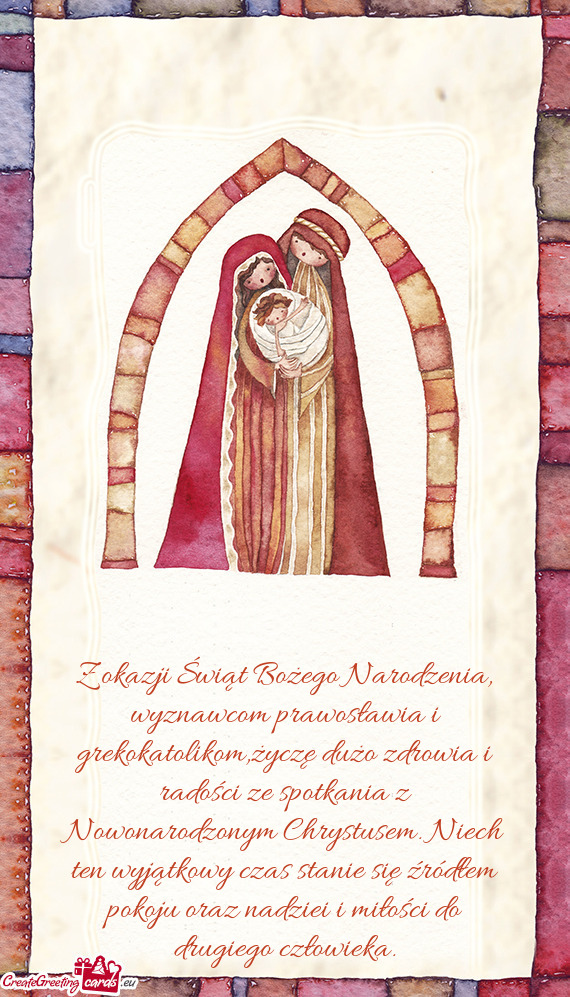 Z okazji Świąt Bożego Narodzenia,
wyznawcom prawosławia i
grekokatolikom,życzę dużo zdrowia i
radości ze spotkania z
Nowonarodzonym Chrystusem. Niech
ten wyjątkowy czas stanie się źródłem
pokoju oraz nadziei i miłości do
drugiego człowieka.
CreateGreeting cards .eu